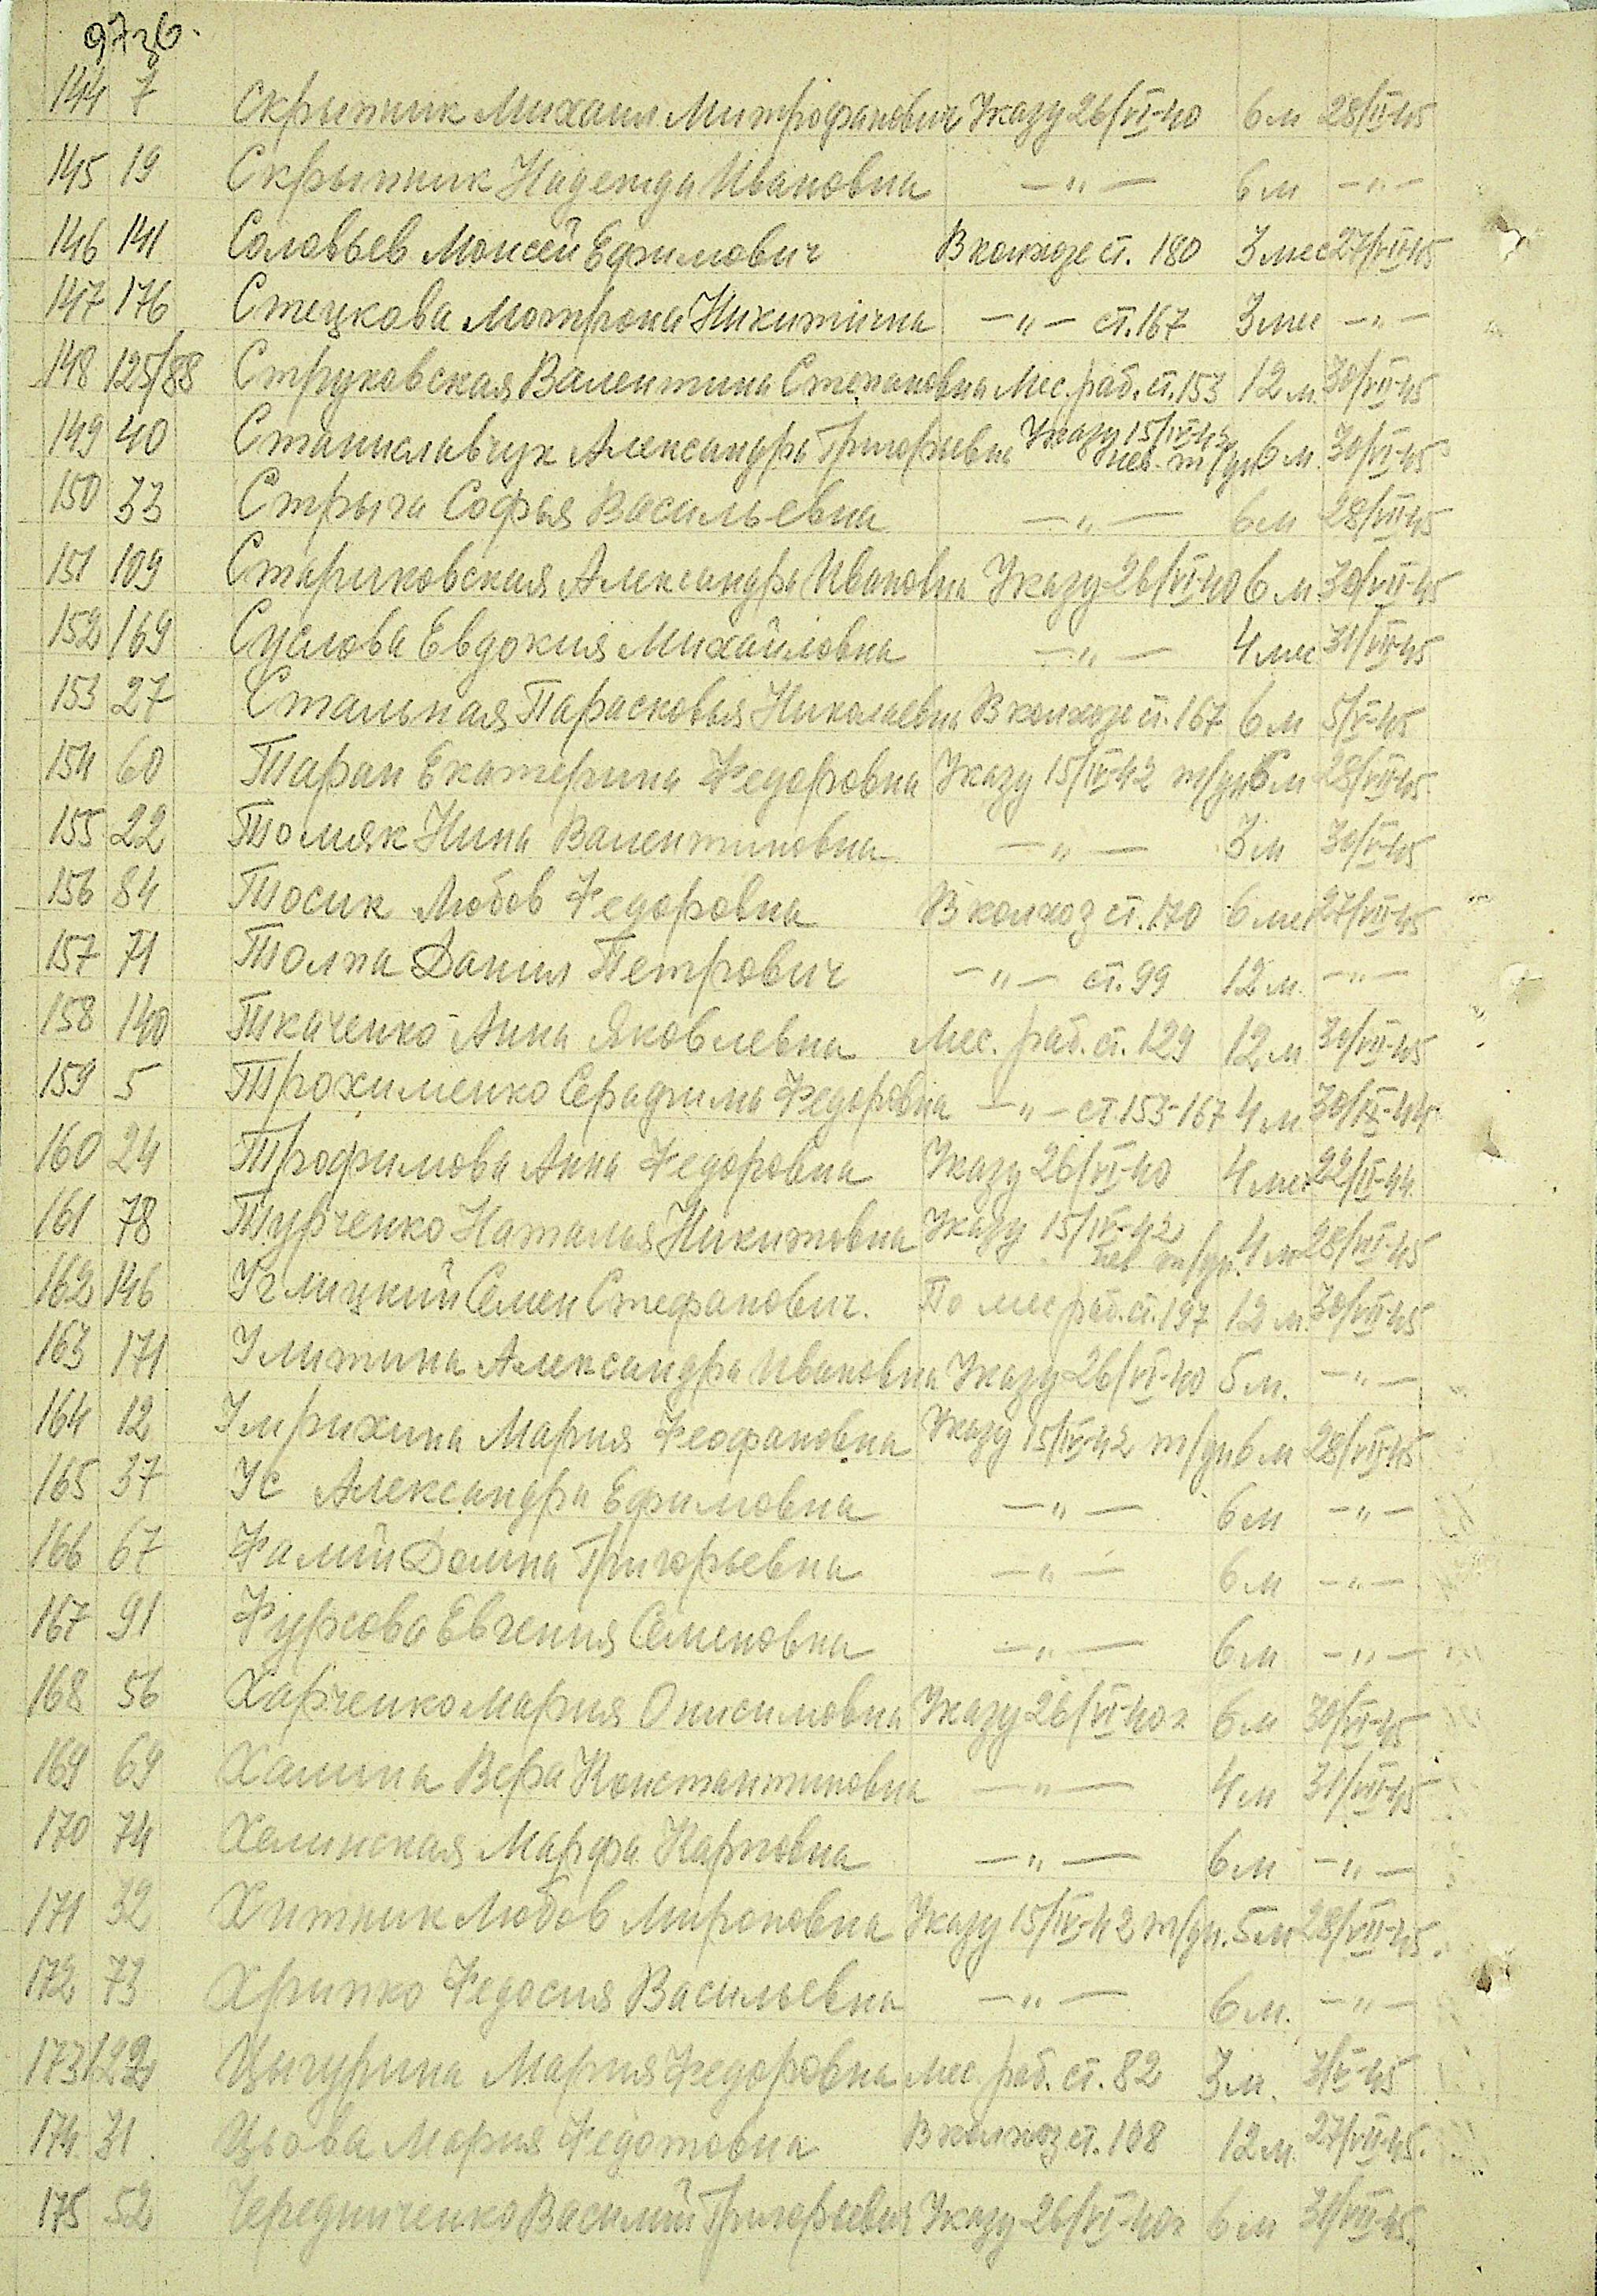 97 зв.
144 7 Скрытник Михаил Митрофанович Указу 26/VI-40 6 м 28/VII-45
145 19 Скрытник Надежда Ивановна —"— 6 м —"—
146 141 Соловьев Моисей Ефимович В колхозе ст. 180 3 мес 27/VII-45
147 176 Стецкова Мотрона Никитична —"— ст. 167 3 мес —"—
148 125/88 Струковская Валентина Степановна Мес. раб. ст. 153 12 м. 30/VII-45
149 40 Станиславчук Александра Григорьевна Указу 15/IV-42 нев. т/дн 6 м. 30/VI-45
150 33 Стрыга Софья Васильевна —"— 6 м 28/VII-45
151 109 Стариковская Александра Ивановна Указу 26/VI-40 6 м 30/VII-45
152 169 Суслова Евдокия Михайловна —"— 4 мес 31/VII-45
153 27 Стальная Парасковья Николаевна В колхозе ст. 167 6 м 5/V-45
154 60 Таран Екатерина Федоровна Указу 15/IV-42 т/дн 6 м 28/VII-45
155 22 Томяк Нина Валентиновна —"— 3 м 30/VI-45
156 84 Тосик Любов Федоровна В колхоз ст. 170 6 мес 27/VII-45
157 71 Толпа Данил Петрович —"— ст. 99 12 м. —"—
158 140 Ткаченко Анна Яковлевна Мес. раб. ст. 129 12 м 30/VII-45
159 5 Трохименко Серафима Федоровна —"— ст. 153-167 4 м 30/IX-44
160 24 Трофимова Анна Федоровна Указу 26/VI-40 4 мес 22/II-44
161 78 Турченко Наталья Никитовна Указу 15/IV-42 нев т/дн. 4 м 28/VII-45
162 146 Углицкий Семен Стефанович. По мес раб. ст. 197 12 м. 30/VII-45
163 171 Улитина Александра Ивановна Указу 26/VI-40 5 м. —"—
164 12 Умрихина Мария Феофановна Указу 15/IV-42 т/дн 6 м 28/VII-45
165 37 Ус Александра Ефимовна —"— 6 м —"—
166 67 Фалий Домна Григорьевна —"— 6 м —"—
167 91 Фурсова Евгения Семеновна —"— 6 м —"—
168 56 Харченко Мария Онисимовна Указу 26/VI-40 г 6 м 30/VI-45
169 69 Халина Вера Константиновна —"— 4 м 31/VII-45
170 74 Халинская Марфа Карповна —"— 6 м —"—
171 32 Хитник Любов Мироновна Указу 15/IV-42 т/дн. 5 м 28/VII-45.
172 73 Хрипко Федосия Васильевна —"— 6 м. —"—
173 122 Цыгурина Мария Федоровна Мес. раб. ст. 82 3 м. 3/V-45
174 31 Цьова Мария Федотовна В колхоз ст. 108 12 м. 27/VII-45.
175 52 Чередниченко Василий Григорьевич Указу 26/VI-40 г 6 м 31/VII-45.